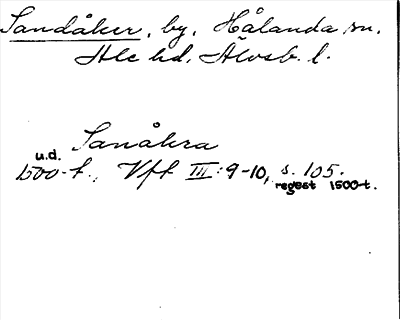 Sandåker, by, Hålanda sn.
Ale hd. Älvsb. l.
Sanåkra
u.d.
1500-t., Vft III: 9-10, s. 105.
regest 1500-t.